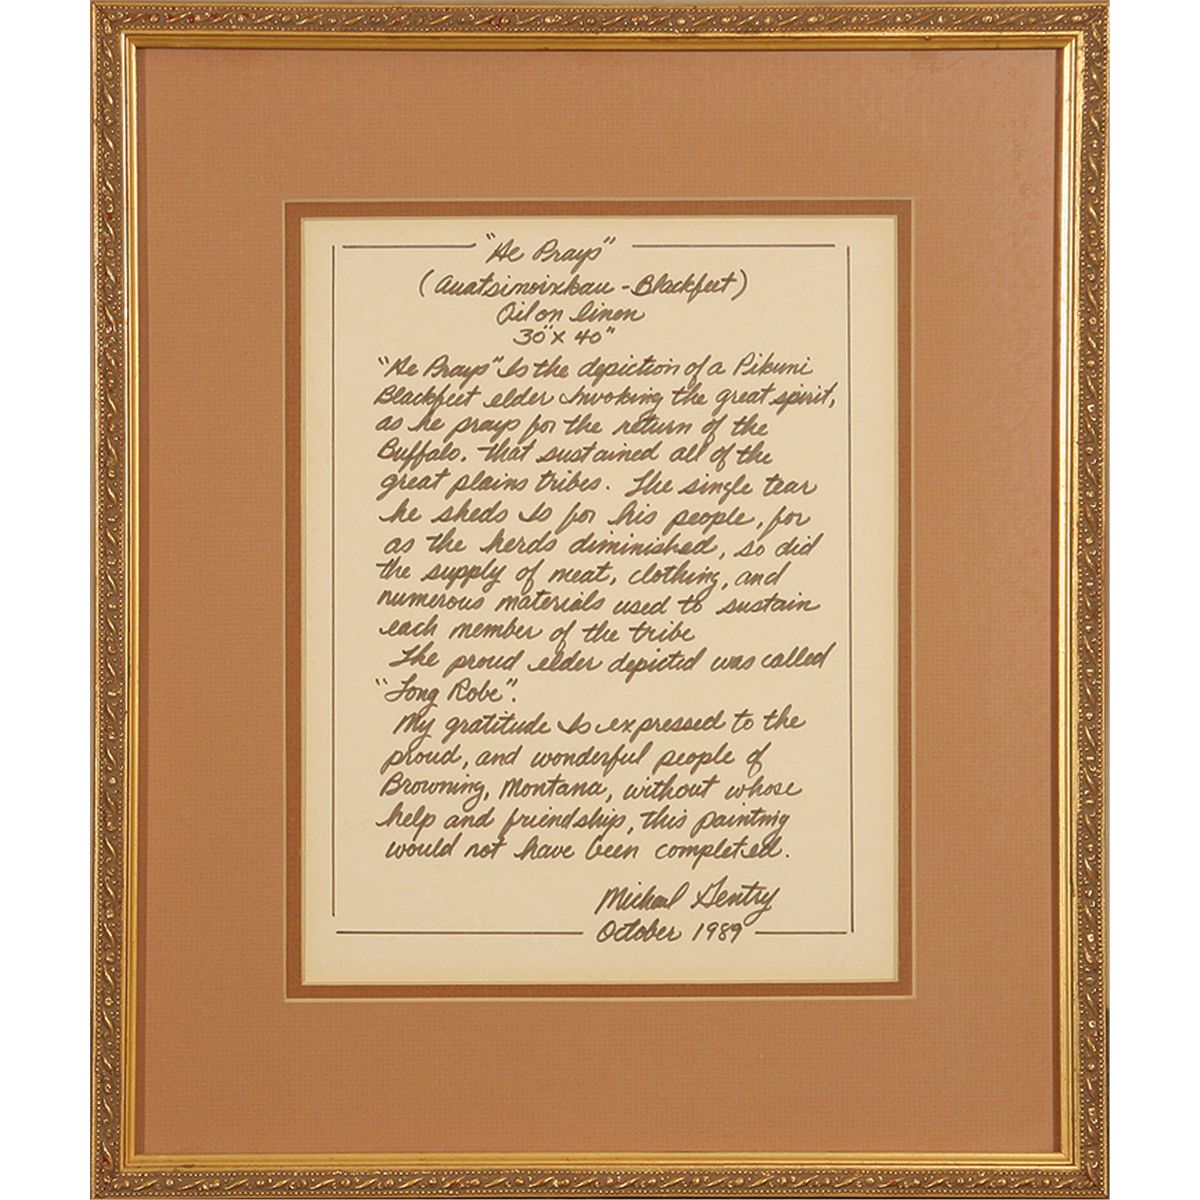 "He Prays"
(Auatsimoixkau - Blackfeet)
Oil on linen
30" x 40"
"He Prays" is the depiction of a Pikuni
Blackfeet elder invoking the great spirit,
as he prays for the return of the
Buffalo. that sustained all of the
great plains tribes. The single tear
he sheds is for his people, for
as the herds diminished, so did
the supply of meat, clothing, and
numerous materials used to sustain
each member of the tribe
The proud elder depicted was called
"Long Robe".
My gratitude is expressed to the
proud, and wonderful people of
Browning, Montana, without whose
help and friendship, this painting
would not have been completed.
Michael Gentry
October 1989